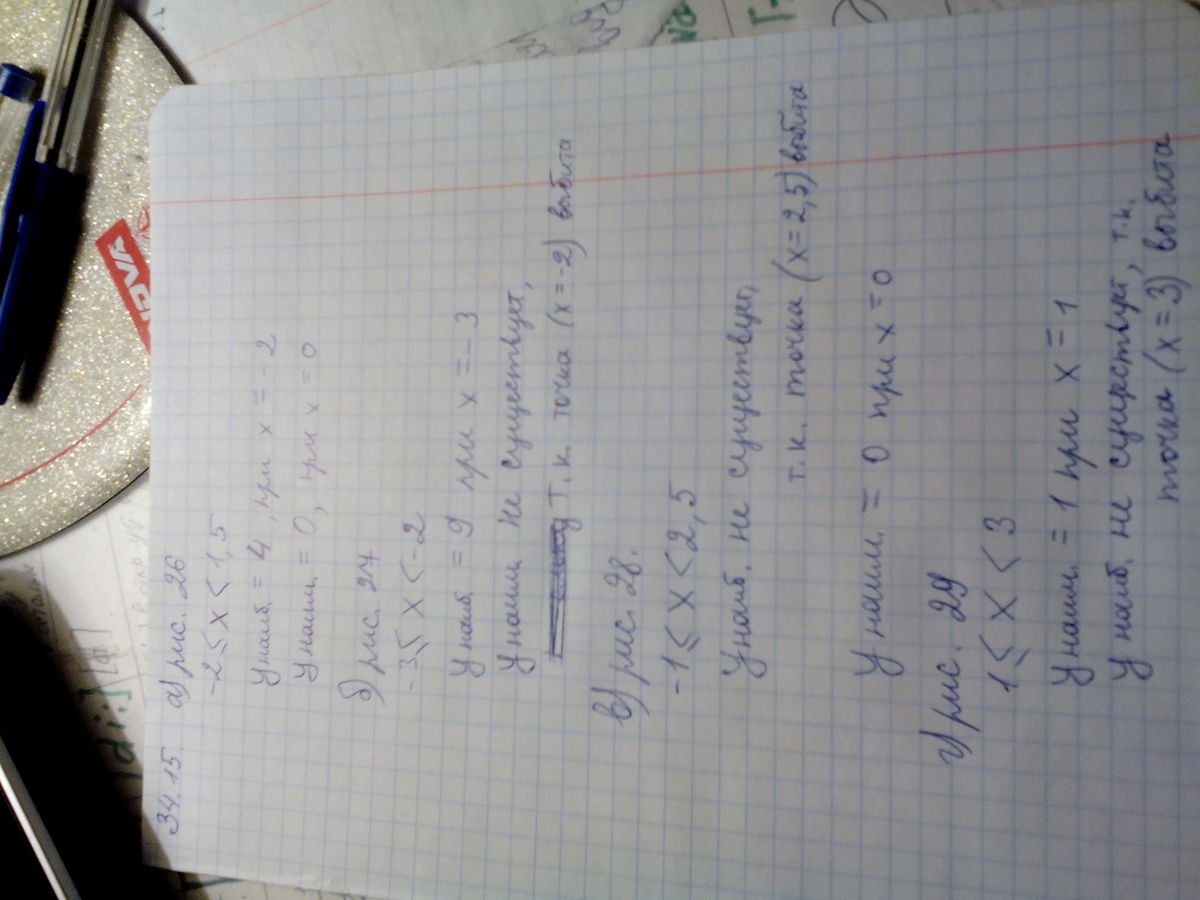 34.15. а) рис. 26
-2 ≤ x < 1,5
y наиб. = 4, при x = -2
y наим. = 0, при x = 0
б) рис. 27
-3 ≤ x < -2
y наиб. = 9 при x = -3
y наим. не существует,
т.к. точка (x = -2) выбита
в) рис. 28.
-1 ≤ x < 2,5
y наиб. не существует,
т.к. точка (x = 2,5) выбита
y наим. = 0 при x = 0
г) рис. 29
1 ≤ x < 3
y наим. = 1 при x = 1
y наиб. не существует, т.к.
точка (x = 3) выбита